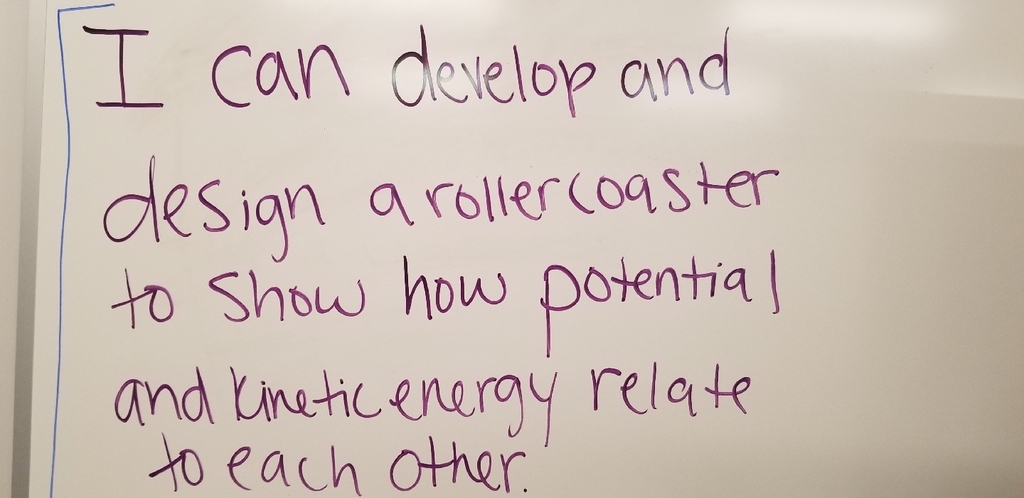 I can develop and
design a rollercoaster
to show how potential
and kinetic energy relate
to each other.